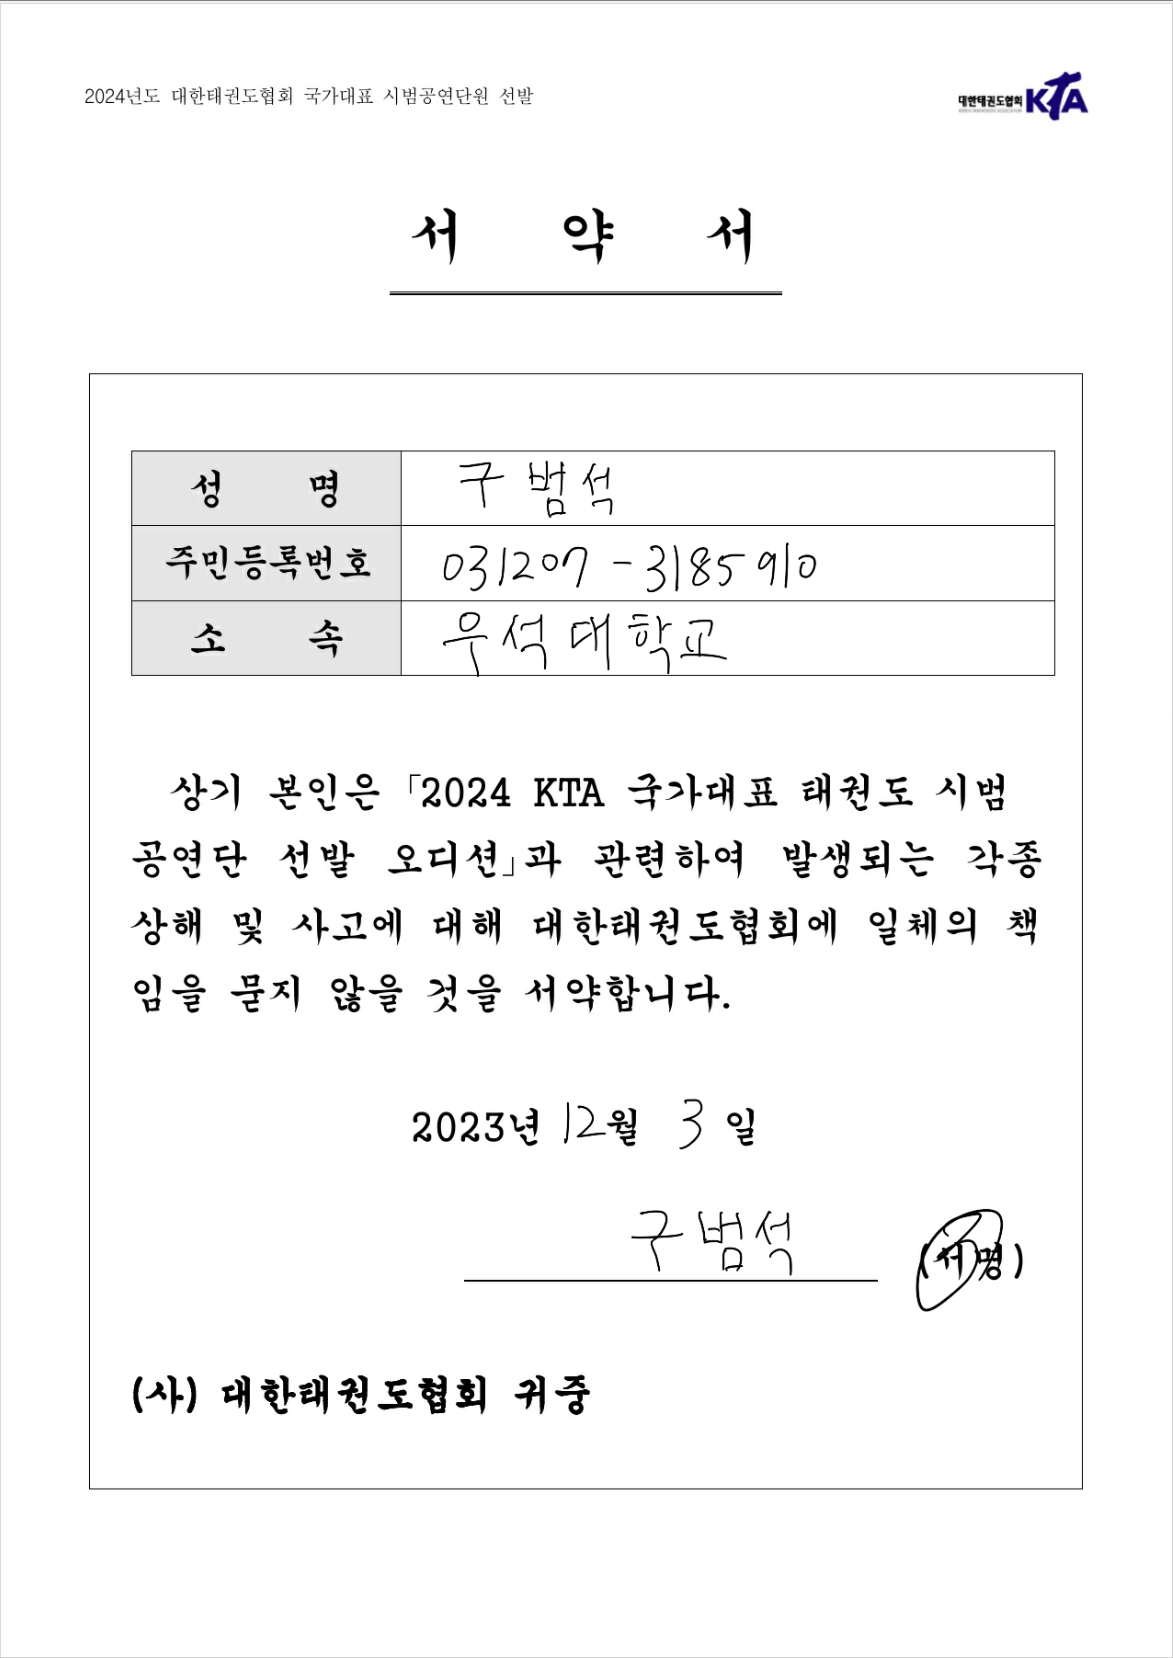 2024년도 대한태권도협회 국가대표 시범공연단원 선발
대한태권도협회 KTA
서 약 서
성 명 구범석
주민등록번호 031207-3185910
소 속 우석대학교
상기 본인은 「2024 KTA 국가대표 태권도 시범
공연단 선발 오디션」과 관련하여 발생되는 각종
상해 및 사고에 대해 대한태권도협회에 일체의 책
임을 묻지 않을 것을 서약합니다.
2023년 12월 3일
구범석 (서명)
(사) 대한태권도협회 귀중